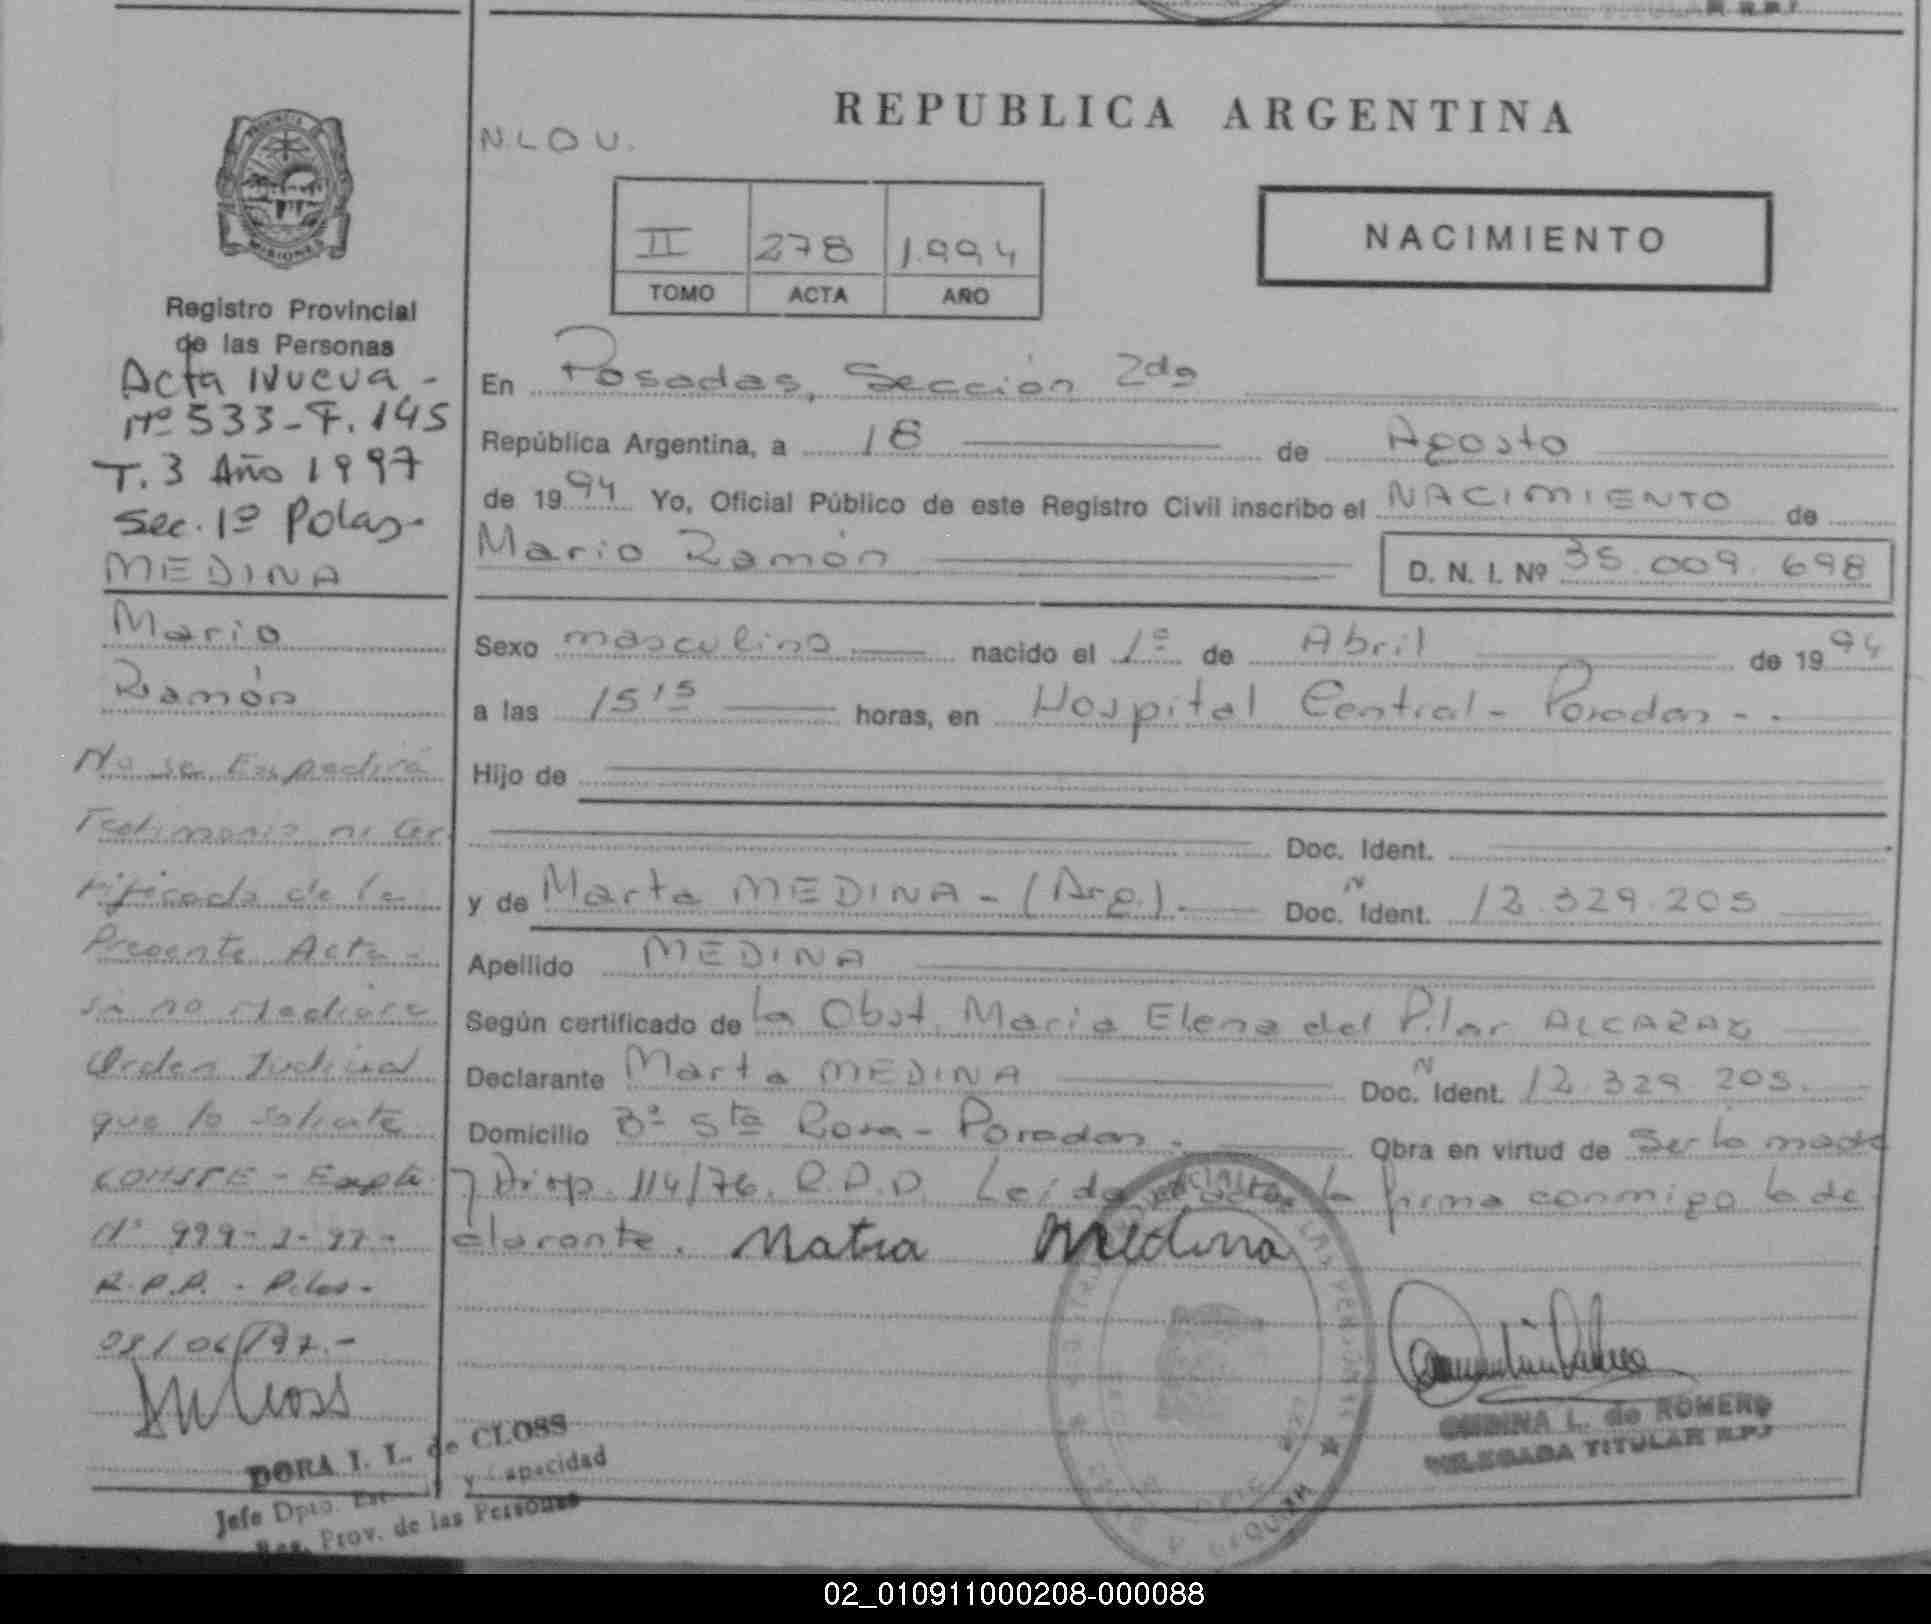 REPUBLICA ARGENTINA
N.L.O.U.
NACIMIENTO
II 278 1.994
TOMO ACTA AÑO
PROVINCIA DE MISIONES
Registro Provincial
de las Personas
Acta Nueva -
Nº 533 - F. 145
T. 3 Año 1997
Sec. 1º Pdas.-
MEDINA
Mario
Ramón
No se Expedirá
Testimonio ni Cer
tificado de la
Presente Acta -
si no mediare
Orden Judicial
que lo solicite
CONSTE - Expte.
Nº 999- -97-
R.P.P. - Pdas-
/06/97.-
DORA I. L. de CLOSS
Jefe Dpto. Est. y Capacidad
Reg. Prov. de las Personas
En Posadas, Sección 2da
República Argentina, a 18 de Agosto
de 1994 Yo, Oficial Público de este Registro Civil inscribo el NACIMIENTO de
Mario Ramón D. N. I. Nº 35.009.698
Sexo masculino nacido el 1º de Abril de 1994
a las 15 15 horas, en Hospital Central - Posadas - .
Hijo de
Doc. Ident.
y de Marta MEDINA - (Arg.). - Doc. N Ident. 12.329.205
Apellido MEDINA
Según certificado de la Obst. María Elena del Pilar ALCARAZ
Declarante Marta MEDINA Doc. N Ident. 12.329.205.
Domicilio Bº Sta Rosa - Posadas. - Obra en virtud de Ser la madre
y Disp. 114/76. R.P.P. Leída el acta la firma conmigo la de
clarante. Matra Medina
L. de ROMERO
DELEGADA TITULAR R.P.P
02_010911000208-000088